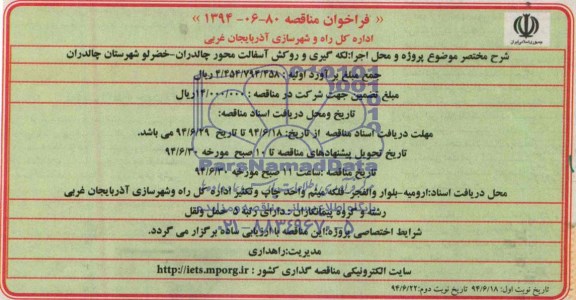 « فراخوان مناقصه ۸۰-۰۶- ۱۳۹۴ »
اداره کل راه و شهرسازی آذربایجان غربی
شرح مختصر موضوع پروژه و محل اجرا:لکه گیری و روکش آسفالت محور چالدران-خضرلو شهرستان چالدران
جمع مبلغ بر آورد اولیه : ۴/۴۵۴/۷۹۳/۳۵۸ ریال
مبلغ تضمین جهت شرکت در مناقصه : ریال
تاریخ ومحل دریافت اسناد مناقصه:
مهلت دریافت اسناد مناقصه از تاریخ: ۹۴/۶/۱۸ تا تاریخ ۹۴/۶/۲۹ می باشد.
تاریخ تحویل پیشنهادهای مناقصه تا ۱۰ صبح مورخه ۹۴/۶/۳۰
تاریخ مناقصه :ساعت ۱۱ صبح مورخه ۹۴/۶/۳۰
ParsNamadData
محل دریافت اسناد:ارومیه-بلوار والفجر- فلکه میثم واحد چاپ وتکثیر اداره کل راه وشهرسازی آذربایجان غربی
پایگاه اطلاع رسانی مناقصه و مزایده
رشته و گروه پیمانکاران :دارای رتبه ۵ حمل ونقل
۰۲۱-۸۸۳۴۹۶۷۰-۵
شرایط اختصاصی پروژه:این مناقصه با ارزیابی ساده برگزار می گردد.
مدیریت:راهداری
سایت الکترونیکی مناقصه گذاری کشور : http://iets.mporg.ir
تاریخ نوبت اول: ۹۴/۶/۱۸ تاریخ نوبت دوم:۹۴/۶/۲۲